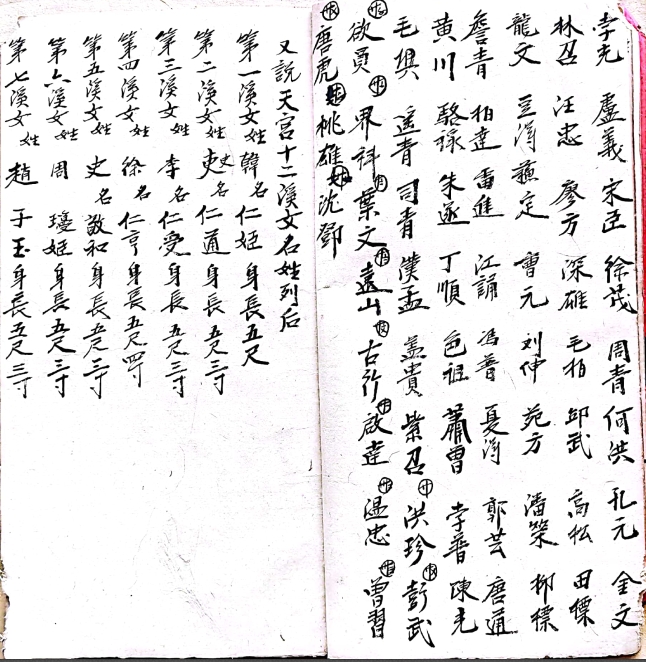 李充 盧義 宋臣 徐茂 周青 何洪 孔元 金文
林召 汪忠 廖方 深雄 毛柏 邱武 高松 田標
龍文 豆淂 蘓定 曹元 刘伸 苑方 潘荣 柳標
詹青 柏達 雷進 江誦 馮普 夏淂 郭芸 唐通
黄川 駱禄 朱遂 丁順 色祖 蕭曾 李普 陳充
毛興 遥青 司青 濮孟 盖貴 柴召 洪珍 彭武
欲員 界科 葉文 遠山 古行 啟達 温忠 曾習
唐虎 桃雄 沈鄧
又說天宫十二溪文名姓列后
第一溪文姓韓名仁姬身長五尺
第二溪女姓史名仁通身長五尺三寸
第三溪文姓李名仁受身長五尺三寸
第四溪女姓徐名仁亨身長五尺四寸
第五溪文姓史名敬和身長五尺三寸
第六溪女姓周瓊姬身長五尺三寸
第七溪女姓趙于玉身長五尺三寸